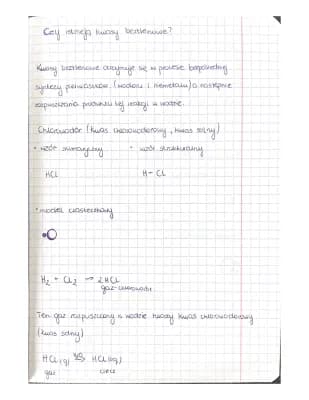 Czy istnieją kwasy beztlenowe?
Kwasy beztlenowe otrzymuje się w procesie bezpośredniej
syntezy pierwiastków (wodoru i niemetalu) a następnie
rozpuszczania produktu tej reakcji w wodzie.
Chlorowodór (kwas chlorowodorowy, kwas solny)
• wzór sumaryczny • wzór strukturalny
HCl H-Cl
• model cząsteczkowy
H₂ + Cl₂ → 2HCl
gaz - chlorowodór
Ten gaz rozpuszczony w wodzie tworzy kwas chlorowodorowy
(kwas solny)
HCl(g) → HCl(aq)
gaz ciecz